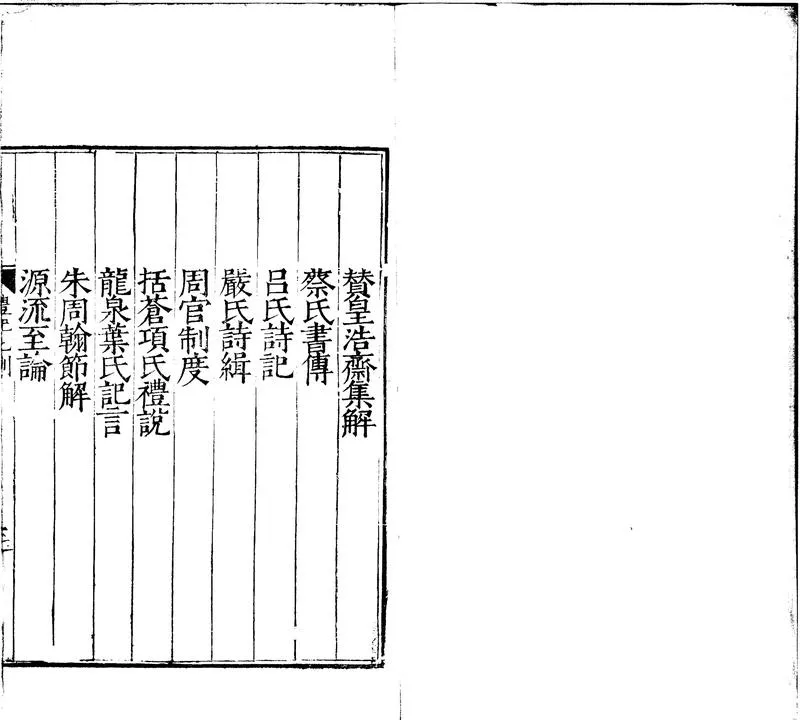 贊皇浩齋集解
蔡氏書傳
呂氏詩記
嚴氏詩緝
周官制度
括蒼項氏禮說
龍泉葉氏記言
朱周翰節解
源流至論